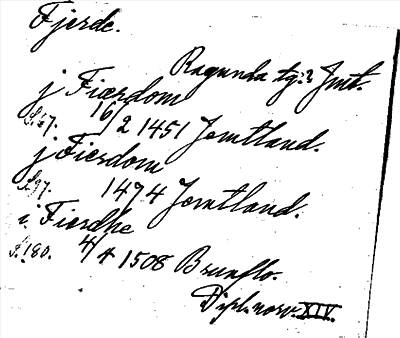 Fjerde.
Ragunda tg:? Jmt.
j Fiærdom
S. 67. 16/2 1451 Jemtland.
j Fierdom
S. 97. 1474 Jemtland.
i Fierdhe
S. 180. 4/4 1508 Brunflo.
Dipl. norv. XIV.